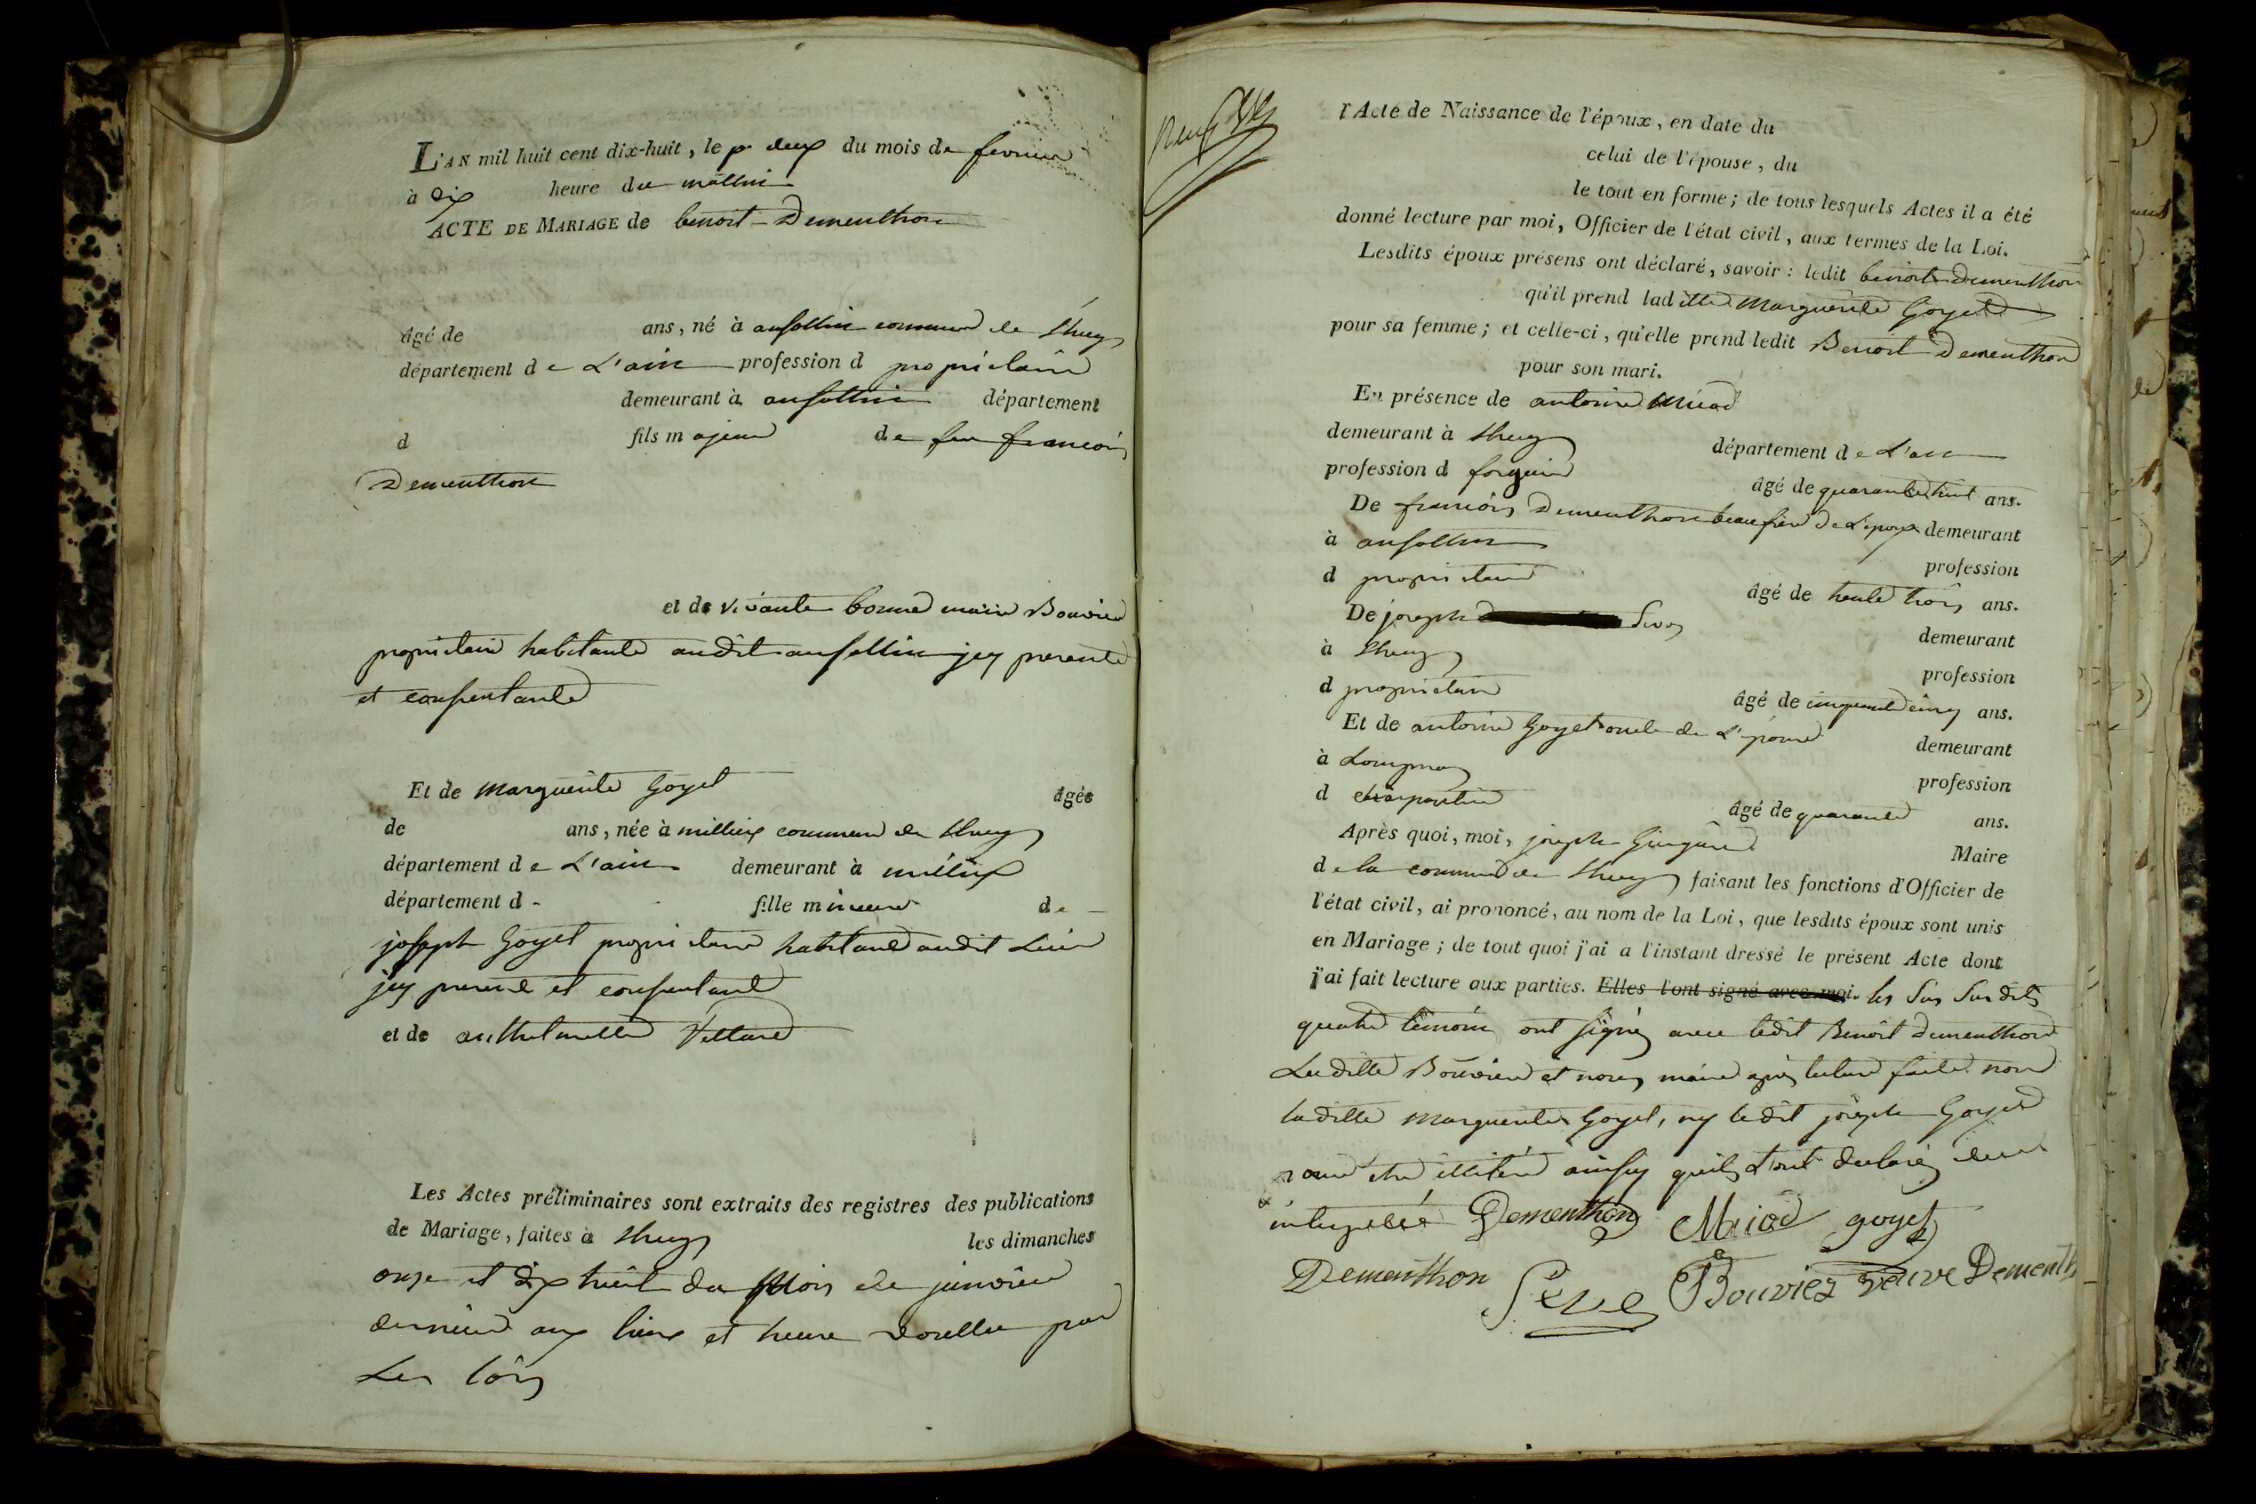 L'AN mil huit cent dix-huit, le deux du mois de fevrier
à dix heure du mattin
ACTE DE MARIAGE de benoit Dementhon
âgé de ans, né à ansollin commune de lhuy
département de L'ain profession d proprietaire
demeurant à ansollin département
d fils majeur de feu francois
Dementhon
et de vivante marie Bouvier
proprietaire habitante audit ansollin jcy presente
et consentante
Et de marguerite Goyet âgée
de ans, née à millieux commune de lhuy
département de L'ain demeurant à millieux
département d fille mineure de
joseph Goyet proprietaire habitant audit Lieu
jcy present et consentant
et de anthelmette Vettard
Les Actes préliminaires sont extraits des registres des publications
de Mariage, faites à lhuy les dimanches
onze et dix huit du mois de janvier
dernier aux lieux et heure voullu par
Les lois
l'Acte de Naissance de l'époux, en date du
celui de l'épouse, du
le tout en forme; de tous lesquels Actes il a été
donné lecture par moi, Officier de l'état civil, aux termes de la Loi.
Lesdits époux présens ont déclaré, savoir: ledit benoit Dementhon
qu'il prend laditte Marguerite Goyet
pour sa femme; et celle-ci, qu'elle prend ledit Benoit Dementhon
pour son mari.
En présence de antoine Miiad
demeurant à lhuy département de L'ain
profession d âgé de quarante huit ans.
De francois Dementhon beau frere de L'epoux demeurant
à ansollin profession
d proprietaire âgé de trente trois ans.
De joseph Seve demeurant
à lhuy profession
d proprietaire âgé de cinquante cinq ans.
Et de antoine Goyet oncle de L'epouse demeurant
à Lompnas profession
d charpentier âgé de quarante ans.
Après quoi, moi, joseph Maire
de la commune de lhuy faisant les fonctions d'Officier de
l'état civil, ai prononcé, au nom de la Loi, que lesdits époux sont unis
en Mariage; de tout quoi j'ai a l'instant dressé le présent Acte dont
j'ai fait lecture aux parties. Elles l'ont signé avec moi. les Susdits
quatre temoins ont signés avec ledit Benoit Dementhon
Laditte Bouvier et nous maire après lecture faite non
laditte Marguerite Goyet, ny ledit joseph Goyet
pour etre illitéré ainsy quils L'ont declarés
interpellé Dementhon Miiad goyet
Dementhon Seve Bouvier veuve Dementh